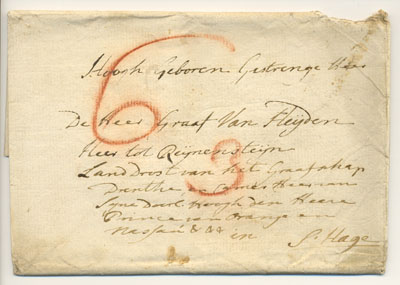 Hoogh Geboren Gestrenge Heer
De Heer Graaf Van Heyden
Heer tot Reijnensteijn
Land Drost van het Graafschap
Drenthe en
Syne Doorl Hoogh den Heere
Prince van Orange en
Nassau & && in S: Hage
6
3